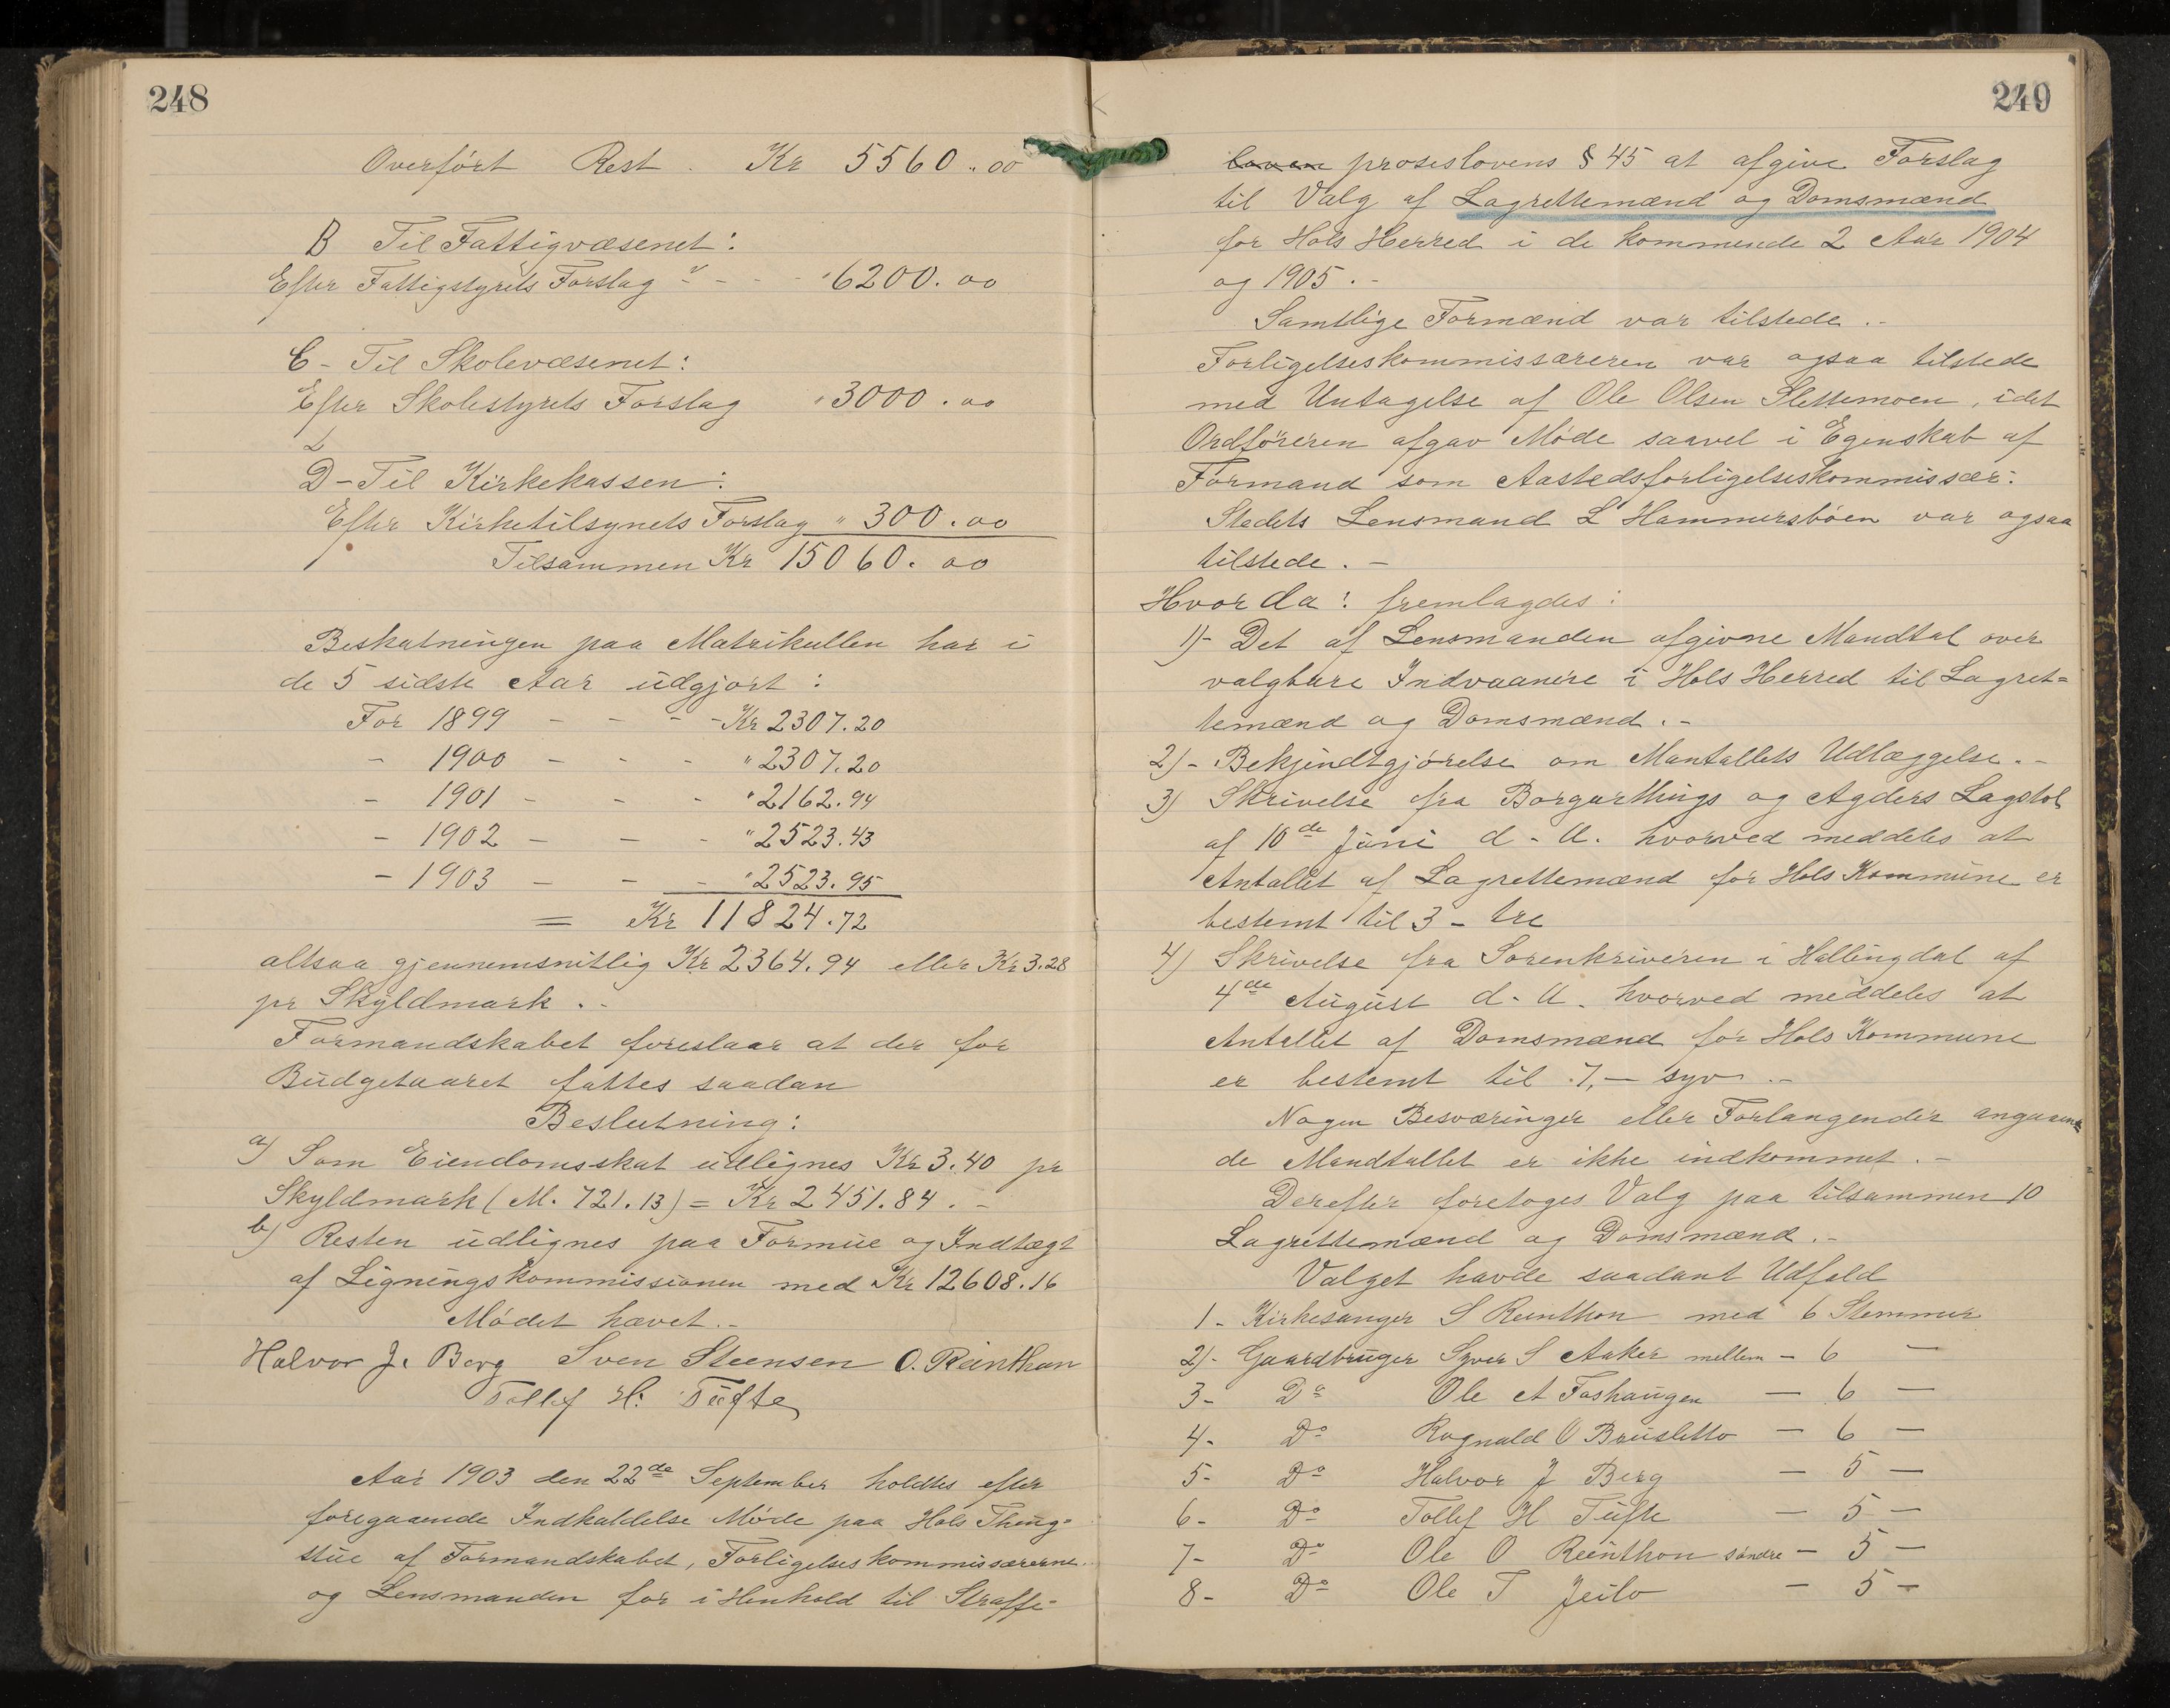 248
Overført Rest . Kr 5560.00
B Til Fattigvæsenet:
Efter Fattigstyrets Forslag " - - - " 6200.00
C - Til Skolevæsenet:
Efter Skolestyrets Forslag " 3000.00
D - Til Kirkekassen:
Efter Kirketilsynets Forslag " 300.00
Tilsammen Kr 15060.00
Beskatningen paa Matrikullen har i
de 5 sidste Aar udgjort:
For 1899 - - - - Kr 2307.20
- 1900 - - - " 2307.20
- 1901 - - - " 2162.94
- 1902 - - - " 2523.43
- 1903 - - - " 2523.95
= Kr 11824.72
altsaa gjennemsnitlig Kr 2364.94 eller Kr 3.28
pr Skyldmark . -
Formandskabet foreslaar at der for
Budgetaaret fattes saadan
Beslutning:
a) Som Eiendomsskat udlignes Kr 3.40 pr
Skyldmark (M. 721.13) = Kr 2451.84 . -
b) Resten udlignes paa Formue og Indtægt
af Ligningskommissionen med Kr 12608.16
Mødet hævet. -
Halvor J. Berg Sven Steensen O. Reinthon
Tollef H. Tufte
Aar 1903 den 22de September holdtes efter
foregaaende Indkaldelse Møde paa Hols Thing-
stue af Formandskabet, Forligelseskommissærerne
og Lensmanden for i Henhold til Straffe-
249
loven proseslovens § 45 at afgive Forslag
til Valg af Lagrettemænd og Domsmænd
for Hols Herred i de kommende 2 Aar 1904
og 1905 . -
Samtlige Formænd var tilstede . -
Forligelseskommissæreren var ogsaa tilstede
med Untagelse af Ole Olsen Slettemoen, idet
Ordføreren afgav Møde saavel i Egenskab af
Formand som Aastedsforligelseskommissær.
Stedets Lensmand L Hammersbøen var ogsaa
tilstede . -
Hvorda: fremlagdes:
1) - Det af Lensmanden afgivne Mandtal over
valgbare Indvaanere i Hols Herred til Lagret=
temænd og Domsmænd . -
2) - Bekjendtgjørelse om Mantallets Udlæggelse . -
3) Skrivelse fra Borgarthings og Agders Lagstol
af 10de Juni d. A. hvorved meddeles at
Antallet af Lagrettemænd for Hols Kommune er
bestemt til 3 - tre
4) Skrivelse fra Sorenkriveren i Hallingdal af
4de August d. A. hvorved meddeles at
Antallet af Domsmænd for Hols Kommune
er bestemt til 7, - syv . -
Nogen Besværinger eller Forlangender angaaen
de Mandtallet er ikke indkommet . -
Derefter foretoges Valg paa tilsammen 10
Lagrettemænd og Domsmænd . -
Valget havde saadant Udfald
1 - Kirkesanger S Reinthon med 6 Stemmer
2) - Gaardbruger Syver S Aaker mellem - 6 -
3 - Do Ole A Foshaugen - 6 -
4 - Do Ragnald O Brusletto - 6 -
5 - Do Halvor J Berg - 5 -
6 - Do Tollef H Tufte - 5 -
7 - Do Ole O Reinthon søndre - 5 -
8 - Do Ole T Jeilo - 5 -